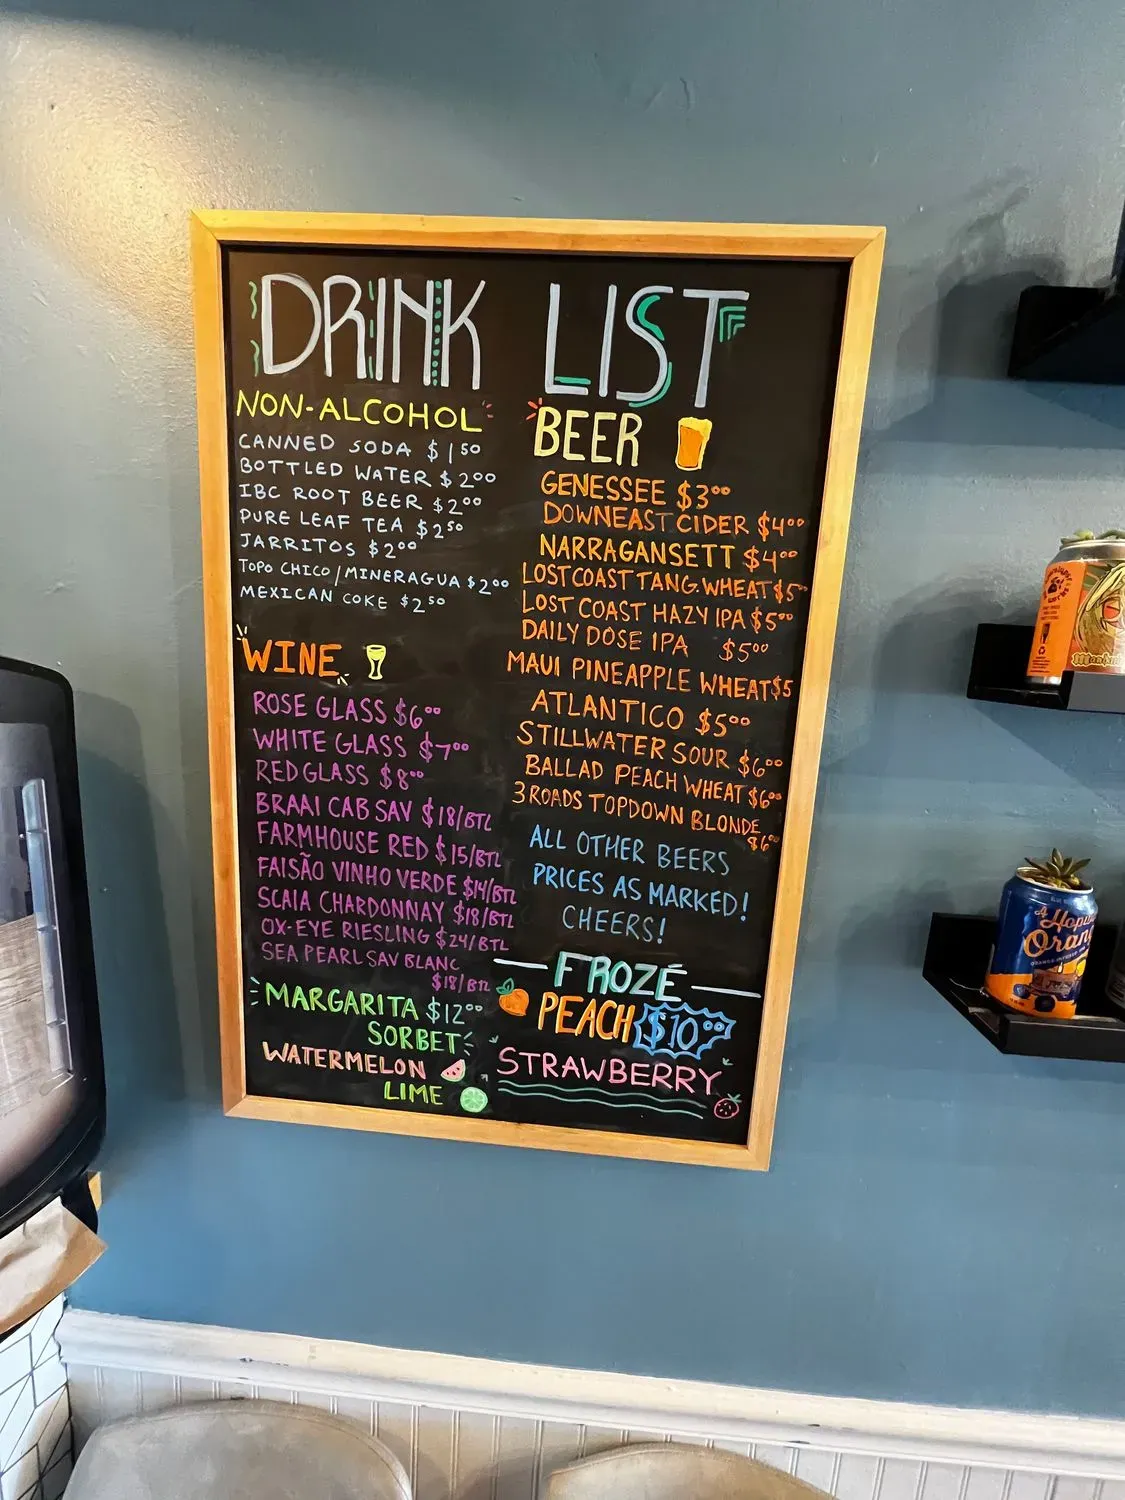 DRINK LIST
NON-ALCOHOL
CANNED SODA $1 50
BOTTLED WATER $2 00
IBC ROOT BEER $2 00
PURE LEAF TEA $2 50
JARRITOS $2 00
TOPO CHICO/MINERAGUA $2 00
MEXICAN COKE $2 50
WINE
ROSE GLASS $6 00
WHITE GLASS $7 00
RED GLASS $8 00
BRAAI CAB SAV $18/BTL
FARMHOUSE RED $15/BTL
FAISÃO VINHO VERDE $14/BTL
SCAIA CHARDONNAY $18/BTL
OX-EYE RIESLING $24/BTL
SEA PEARL SAV BLANC
$18/BTL
MARGARITA $12 00
SORBET
WATERMELON
LIME
BEER
GENESSEE $3 00
DOWNEAST CIDER $4 00
NARRAGANSETT $4 00
LOST COAST TANG. WHEAT $5 00
LOST COAST HAZY IPA $5 00
DAILY DOSE IPA $5 00
MAUI PINEAPPLE WHEAT $5
ATLANTICO $5 00
STILLWATER SOUR $6 00
BALLAD PEACH WHEAT $6 00
3 ROADS TOPDOWN BLONDE
$6 00
ALL OTHER BEERS
PRICES AS MARKED!
CHEERS!
FROZÉ
PEACH $10 00
STRAWBERRY
A Hopu
Oran